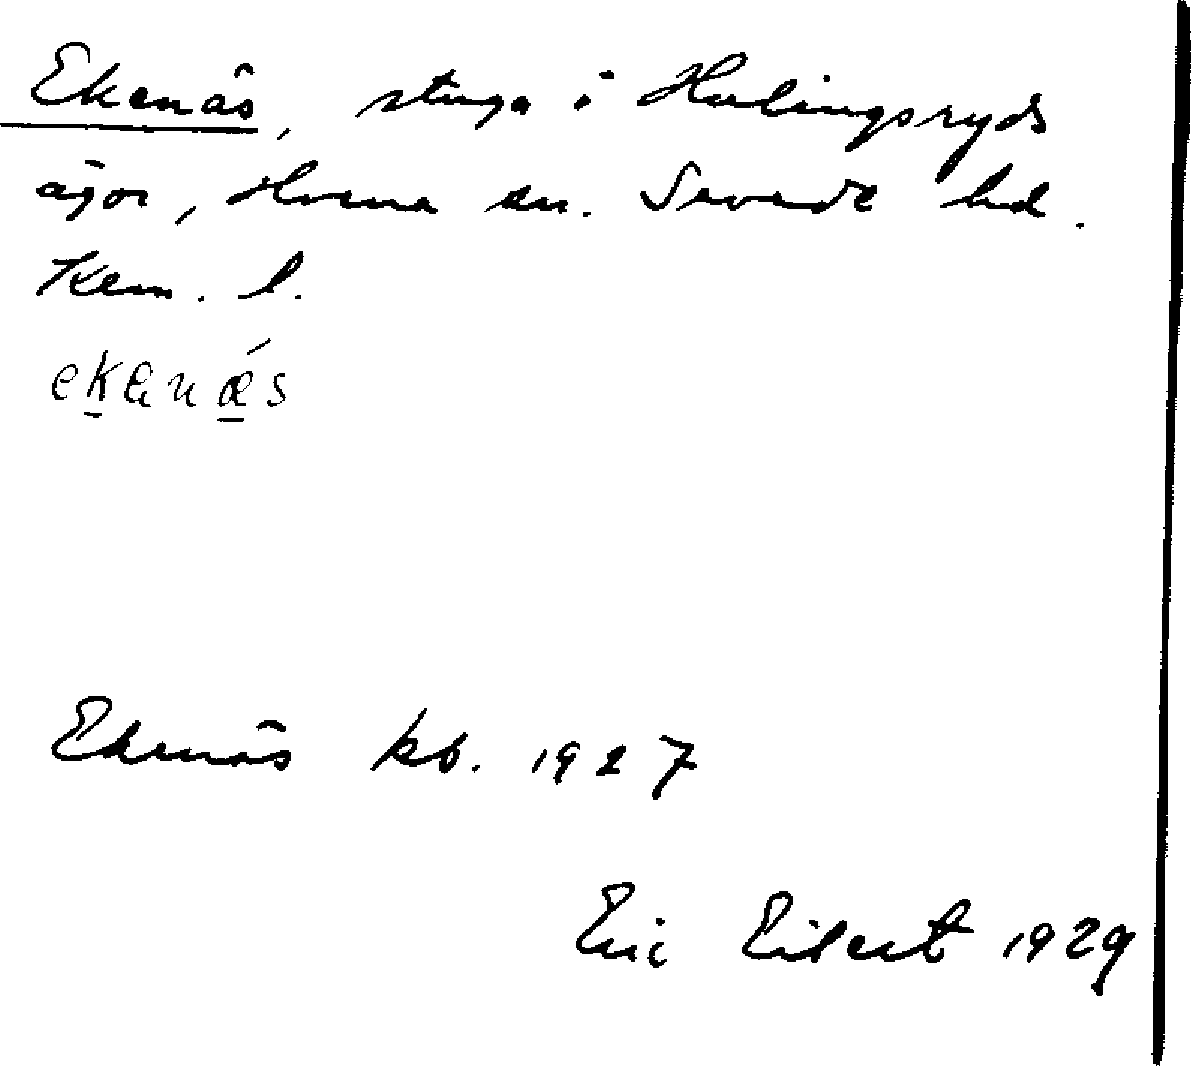 Ekenäs, stuga i Hulingsryds
ägor, Hvena sn. Sevede hd.
Kalm. l.
ekenǽs
Ekenäs kb. 1927
Eric Eilert 1929